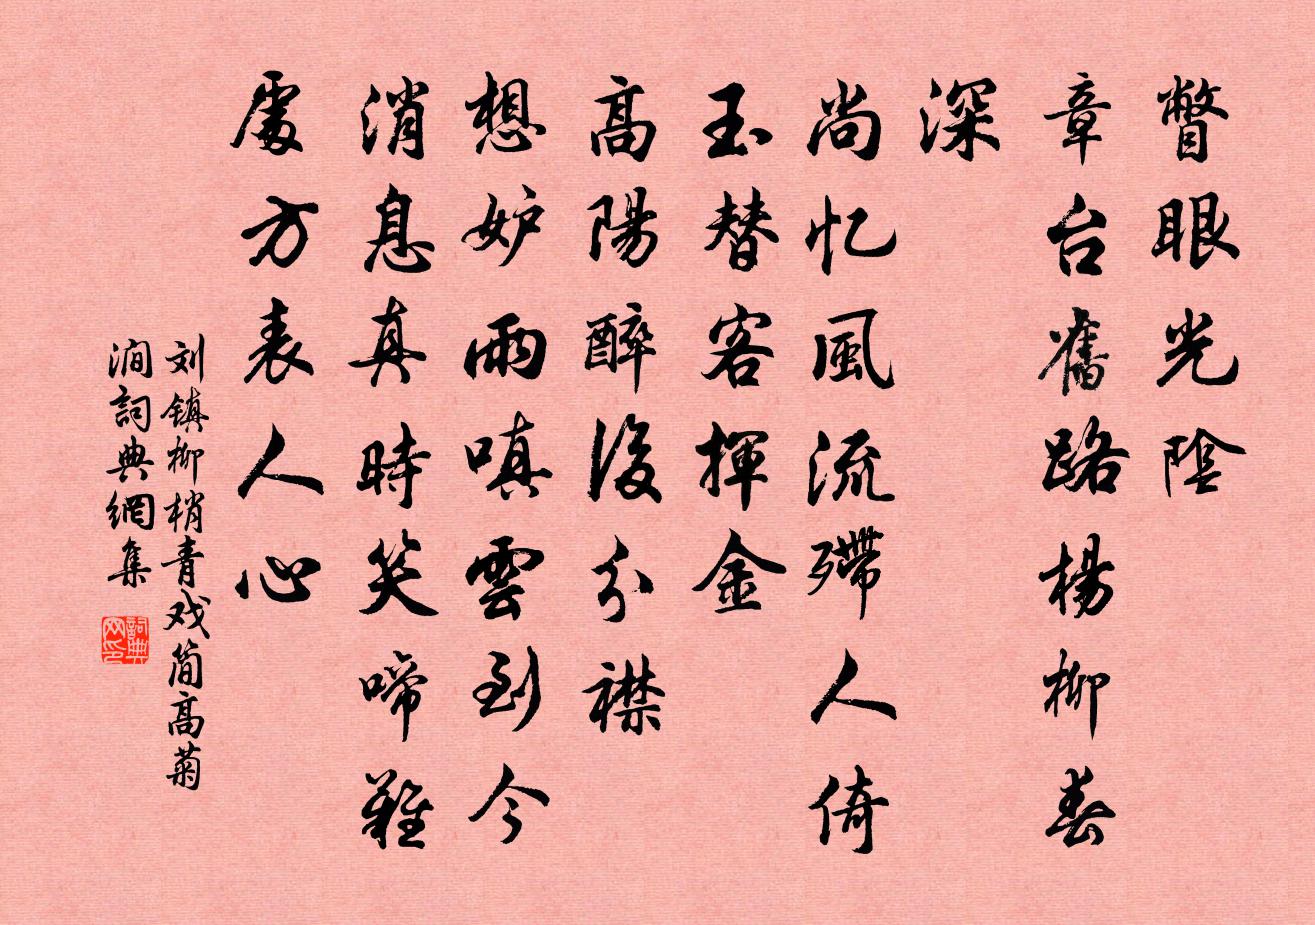 瞥眼光陰
章台舊路楊柳春
深
尚忆風流殢人倚
玉替客揮金
高陽醉後分襟
想妒雨嗔雲到今
消息真時笑啼難
處方表人心
刘镇柳梢青戏简高菊
澗詞典網集
詞典网印